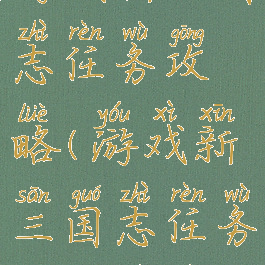 zhì rèn wù gōng
志任务攻
lüè yóu xì xīn
略(游戏新
sān guó zhì rèn wù
三国志任务